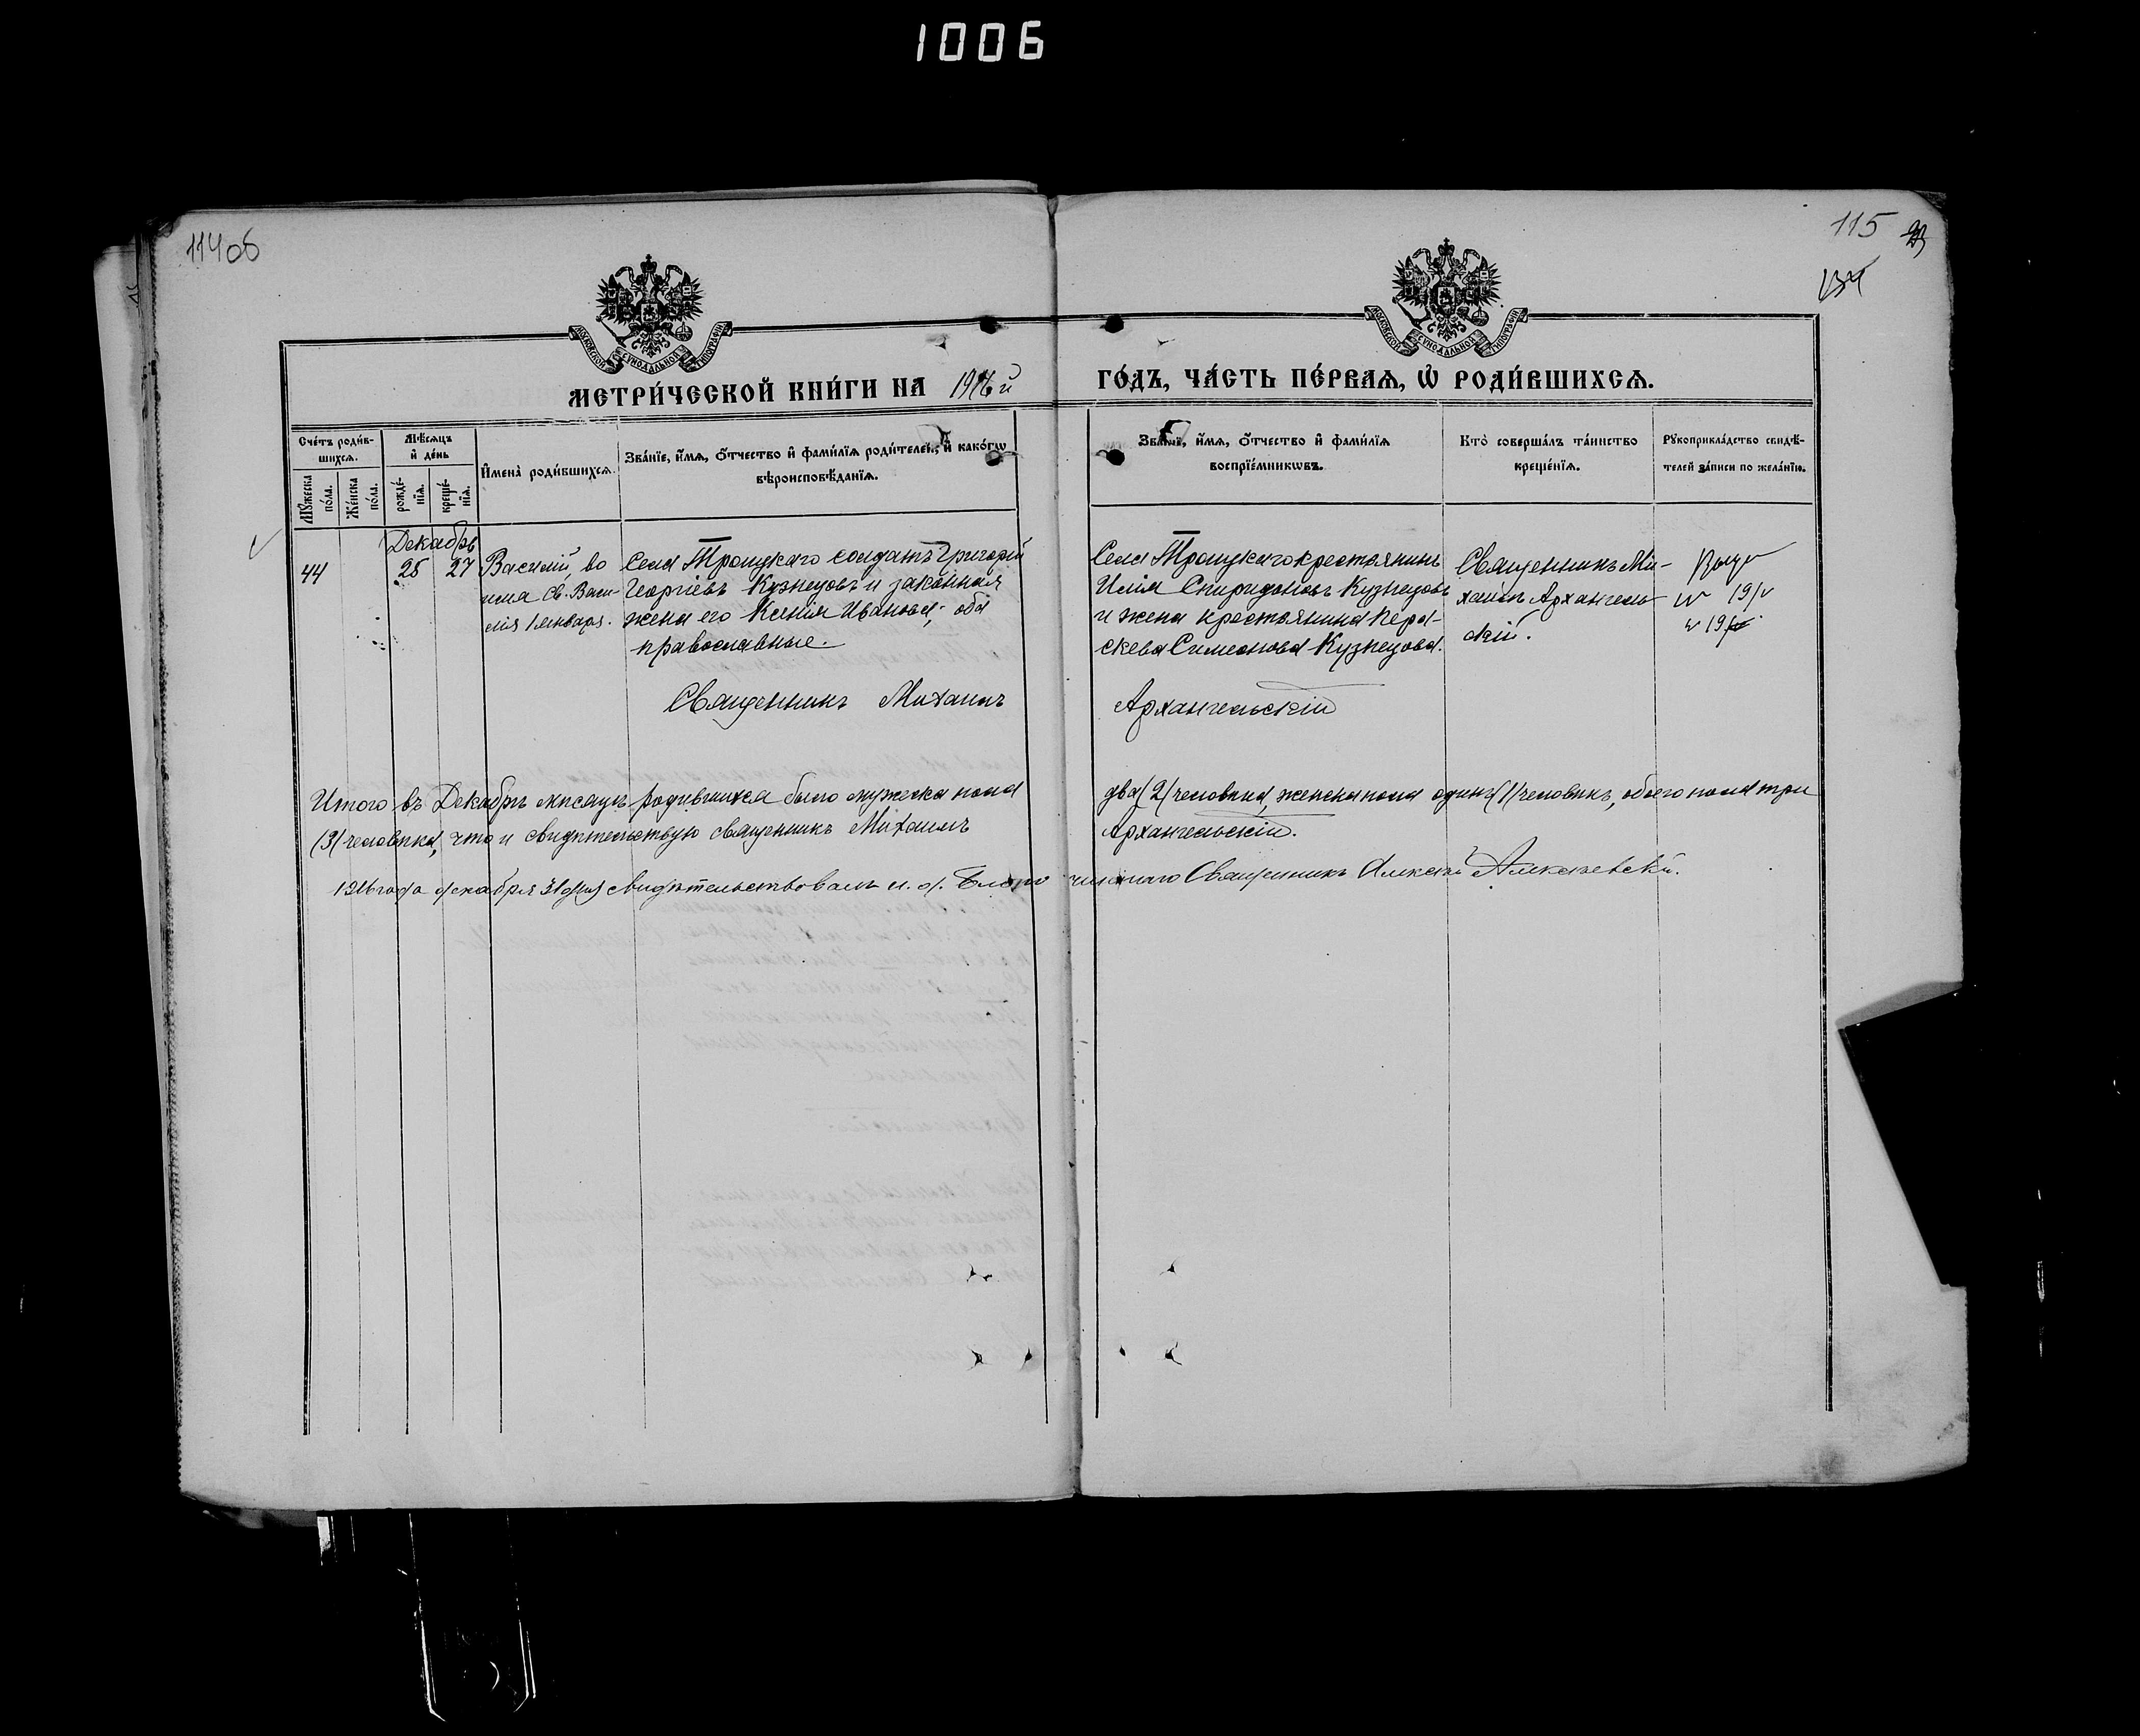 1006
114об
115
134
МОСКОВСКОЙ СѴНОДАЛЬНОЙ ТИПОГРАФІИ
МОСКОВСКОЙ СѴНОДАЛЬНОЙ ТИПОГРАФІИ
МЕТРИ́ЧЕСКОЙ КНИ́ГИ НА 1916й ГО́ДЪ, ЧА́СТЬ ПЕ́РВАѦ, Ѡ҆ РОДИ́ВШИХСѦ.
Сче́тъ роди́в-
шихсѧ.
Мѣ́сѧцъ
и҆ де́нь
Мꙋ́жеска
по́ла.
Же́нска
по́ла.
рожде́-
нїѧ.
креще́-
нїѧ.
И҆мена̀ роди́вшихсѧ.
Зва́нїе, и҆́мѧ, ѻ҆́тчество и҆ фами́лїѧ роди́телей, и҆ како́гѡ
вѣроисповѣ́данїѧ.
Зва́нїе, и҆́мѧ, ѻ҆́тчество и҆ фами́лїѧ
воспрїе́мникѡвъ.
Кто̀ соверша́лъ та́инство
креще́нїѧ.
Рꙋкоприкла́дство свидѣ́-
телей за́писи по жела́нїю.
Декабрь
44
25
27
Василій, во
имя св. Васи-
лія 1 января.
Села Троицкаго солдатъ Григорій
Георгіевъ Кузнецовъ и законная
жена его Ксенія Иванова; оба
православные.
Села Троицкаго крестьянинъ
Илія Спиридоновъ Кузнецовъ
и жена крестьянина Пера-
скева Симеонова Кузнецова.
Священникъ Ми-
хаилъ Архангель-
скій.
Священникъ Михаилъ Архангельскій
Итого въ Декабрѣ мѣсяцѣ родившихся было мужеска пола два (2) человѣка, женска пола одинъ (1) человѣкъ, обоего пола три
(3) человѣка, что и свидѣтельствую священникъ Михаилъ Архангельскій.
1916 года декабря 31 дня свидѣтельствовалъ и. д. Благочиннаго Священникъ Алексій Алексѣевскій.